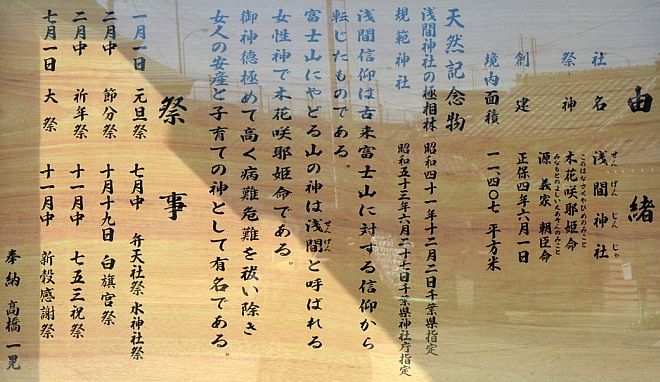 由緒
社名 浅間神社
せんげんじんじゃ
祭神 木花咲耶姫命
このはなさくやひめのみこと
源義家朝臣命
みなもとのよしいえあそんのみこと
創建 正保四年六月一日
境内面積 一一、四〇七 平方米
天然記念物
浅間神社の極相林 昭和四十一年十二月二日千葉県指定
規範神社 昭和五十三年六月二十七日千葉県神社庁指定
浅間信仰は古来富士山に対する信仰から
転じたものである。
富士山にやどる山の神は浅間と呼ばれる
せんげん
女性神で木花咲耶姫命である。
御神徳極めて高く病難危難を祓い除き
女人の安産と子育ての神として有名である。
祭事
一月一日 元旦祭 七月中 弁天社祭 水神社祭
二月中 節分祭 十月十九日 白旗宮祭
二月中 祈年祭 十一月中 七五三祝祭
七月一日 大祭 十一月中 新穀感謝祭
奉納 高橋一晃